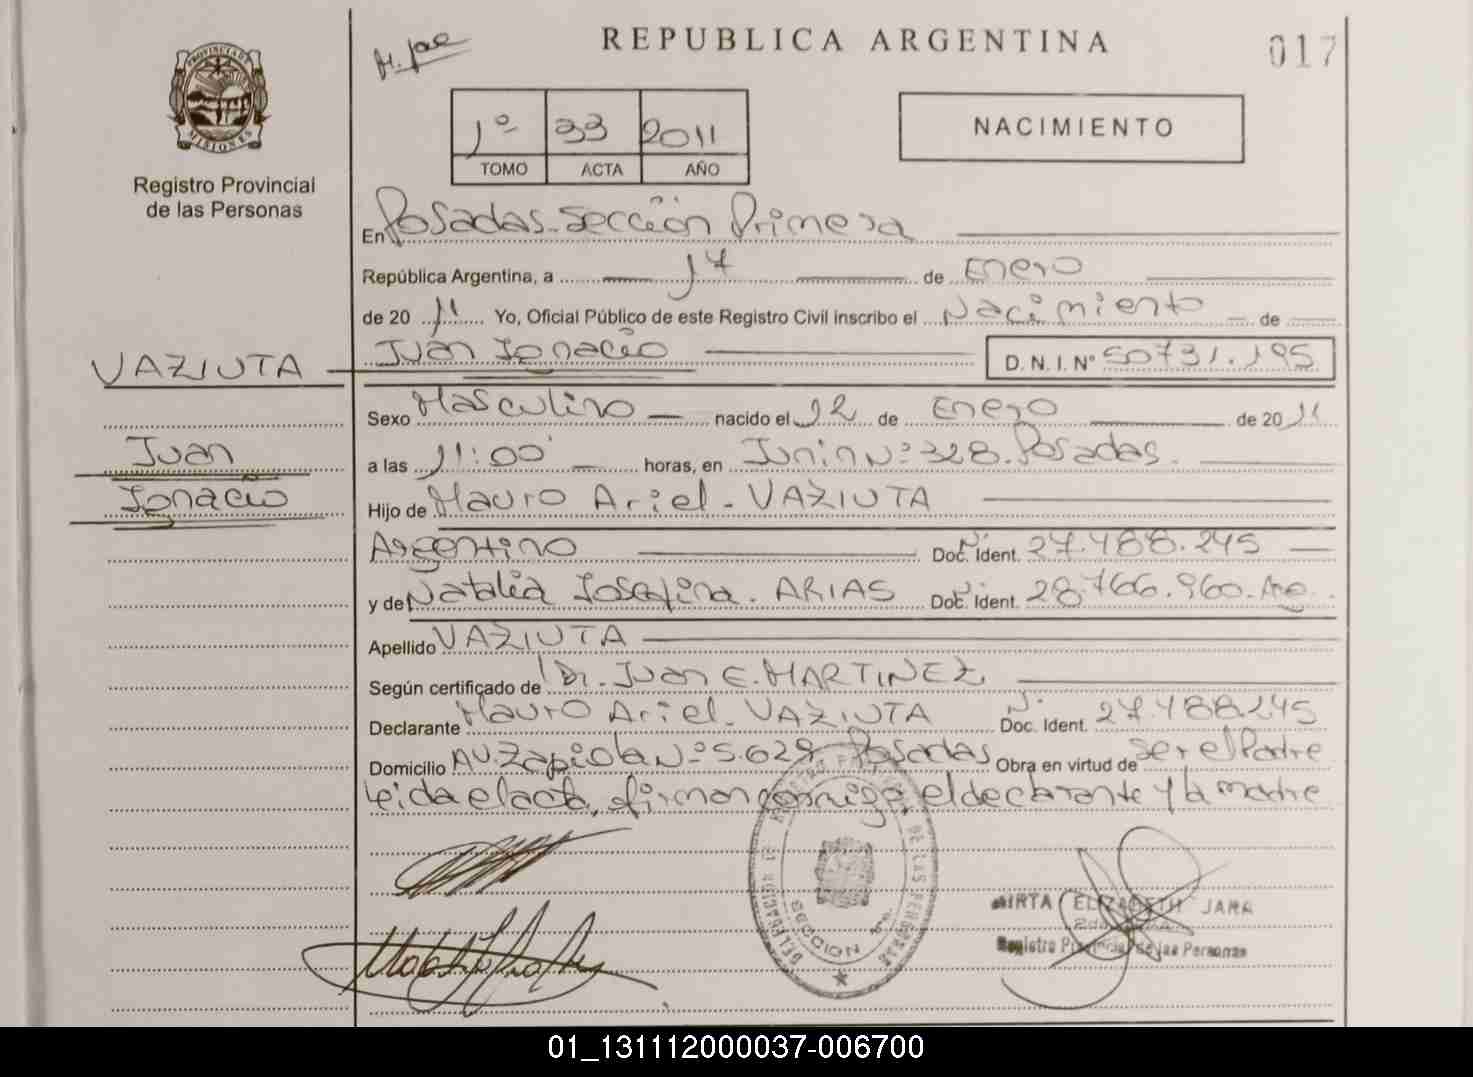 REPUBLICA ARGENTINA
017
PROVINCIA DE MISIONES
Registro Provincial
de las Personas
1º 33 2011
TOMO ACTA AÑO
NACIMIENTO
En Posadas. Sección Primera
República Argentina, a 17 de Enero
de 20 11 Yo, Oficial Público de este Registro Civil inscribo el Nacimiento de
VAZIUTA Juan Ignacio D.N.I. Nº 50731.195
Sexo Masculino nacido el 12 de Enero de 20 11
Juan
a las 11:00 horas, en Junin Nº 328. Posadas.
Ignacio
Hijo de Mauro Ariel - VAZIUTA
Argentino Doc. Ident. 27.488.245
y de Natalia Josefina. ARIAS Doc. Ident. 28.766.960. Arg.
Apellido VAZIUTA
Según certificado de Dr. Juan E. MARTINEZ
Declarante Mauro Ariel - VAZIUTA Doc. Ident. 27.488.245
Domicilio AV. Zapiola Nº 5.629 Posadas Obra en virtud de ser el Padre
leida el acta, firman conmigo, el declarante y la madre
MIRTA ELIZABETH JARA
Registro Provincial de las Personas
SECCION
01_131112000037-006700